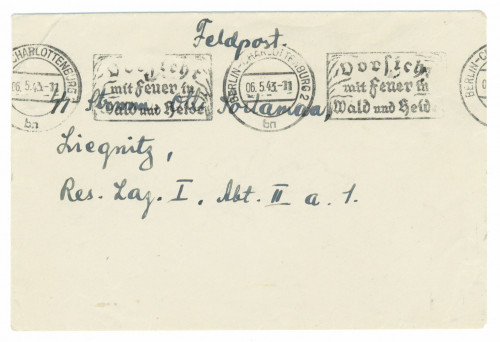 Feldpost.
CHARLOTTENBURG
06.5.43.-11
bn
Vorsicht
mit Feuer in
Wald und Heide
BERLIN-CHARLOTTENBURG 2
06.5.43.-11
bn
Vorsicht
mit Feuer in
Wald und Heide
BERLIN-C
Otto
Liegnitz,
Res. Laz. I. Abt. II a. 1.